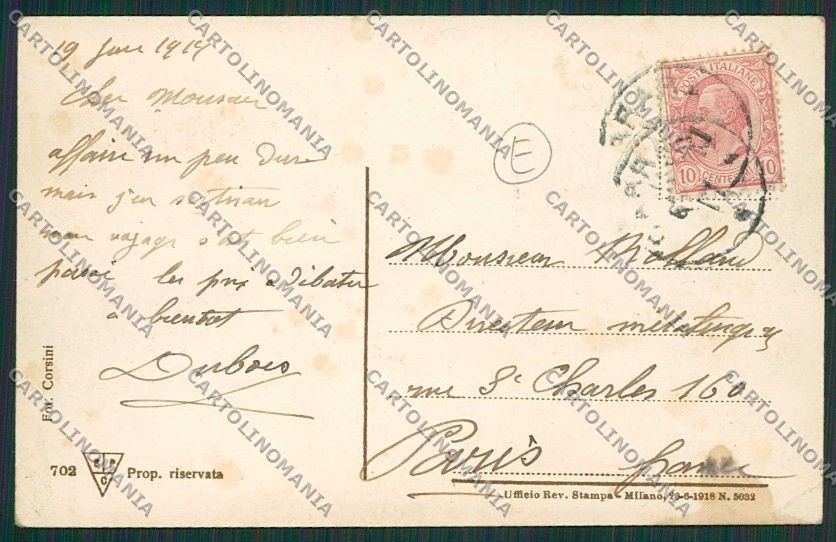 19 Juin 1919
Cher Monsieur
affaire un peu dure
mais j'en sortirai
mon voyage s'est bien
passé les prix à débattre
à bientôt
Dubois
Fot. Corsini
702
Prop. riservata
E
POSTE ITALIANE
10 CENTESIMI 10
Monsieur Rolland
Directeur
rue St Charles 160
Paris france
Ufficio Rev. Stampa - Milano, 26-6-1918 N. 5032
CARTOLINOMANIA